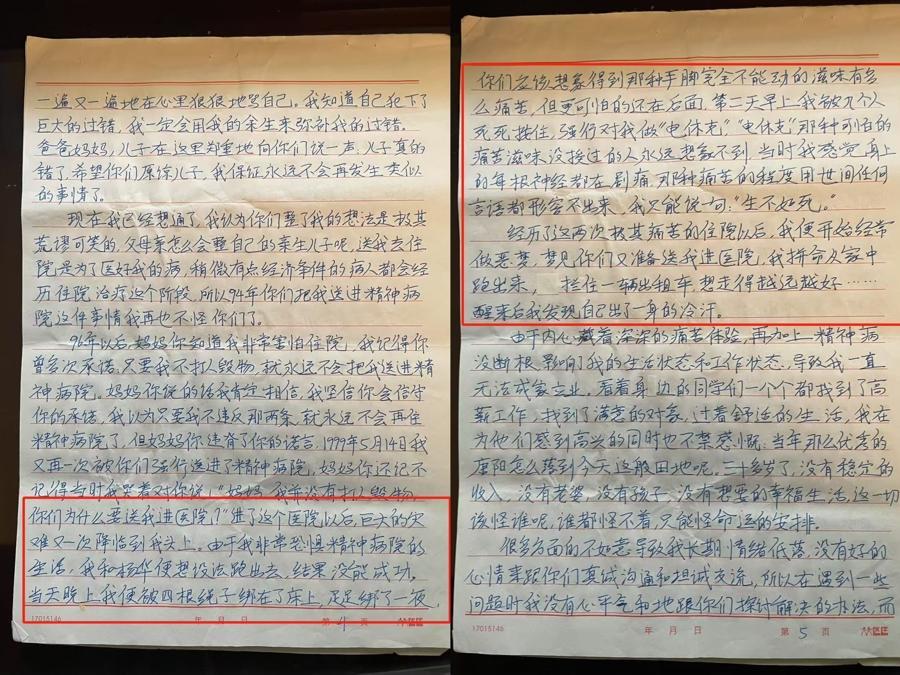 一遍又一遍地在心里狠狠地骂自己。我知道自己犯下了
巨大的过错，我一定会用我的余生来弥补我的过错。
爸爸妈妈，儿子在这里郑重地向你们说一声：儿子真的
错了，希望你们原谅儿子，我保证永远不会再发生类似
的事情了。
现在我已经想通了，我认为你们整了我的想法是极其
荒谬可笑的，父母亲怎么会整自己的亲生儿子呢，送我去住
院是为了医好我的病，稍微有点经济条件的病人都会经
历住院治疗这个阶段，所以94年你们把我送进精神病
院这件事情我再也不怪你们了。
96年以后，妈妈你知道我非常害怕住院，我记得你
曾多次承诺，只要我不打人毁物，就永远不会把我送进精
神病院。妈妈你说的话我肯定相信，我坚信你会信守
你的承诺，我以为只要我不违反那两条，就永远不会再住
精神病院了，但妈妈你违背了你的诺言，1999年5月14日我
又再一次被你们强行送进了精神病院，妈妈你还记不
记得当时我哭着对你说，“妈妈，我并没有打人毁物，
你们为什么要送我进医院？”进了这个医院以后，巨大的灾
难又一次降临到我头上。由于我非常恐惧精神病院的
生活，我和杨华便想设法跑出去，结果没能成功。
当天晚上，我便被四根绳子绑在了床上，足足绑了一夜，
17015146 年 月 日 第 4 页
你们应该想象得到那种手脚完全不能动的滋味有多
么痛苦，但更可怕的还在后面。第二天早上我被九个人
死死按住，强行对我做“电休克”，“电休克”那种可怕的
痛苦滋味没接过的人永远想象不到，当时我感觉身上
的每根神经都在剧痛，那种痛苦的程度用世间任何
言语都形容不出来，我只能说一句：“生不如死。”
经历了这两次极其痛苦的住院以后，我便开始经常
做恶梦，梦见你们又准备送我进医院，我拼命从家中
跑出来，拦住一辆出租车，想走得越远越好……
醒来后我发现自己出了一身的冷汗。
由于内心藏着深深的痛苦体验，再加上精神病
没断根，影响了我的生活状态和工作状态，导致我一直
无法成家立业。看着身边的同学们一个个都找到了高
薪工作，找到了满意的对象，过着舒适的生活，我在
为他们感到高兴的同时也不禁感慨：当年那么优秀的
唐阳怎么落到今天这般田地呢。三十岁了，没有稳定的
收入，没有老婆，没有孩子，没有想要的幸福生活，这一切
该怪谁呢，谁都怪不着，只能怪命运的安排。
很多方面的不如意导致我长期情绪低落，没有好的
心情来跟你们真诚沟通和坦诚交流，所以在遇到一些
问题时我没有心平气和地跟你们探讨解决的办法，而
17015146 年 月 日 第 5 页